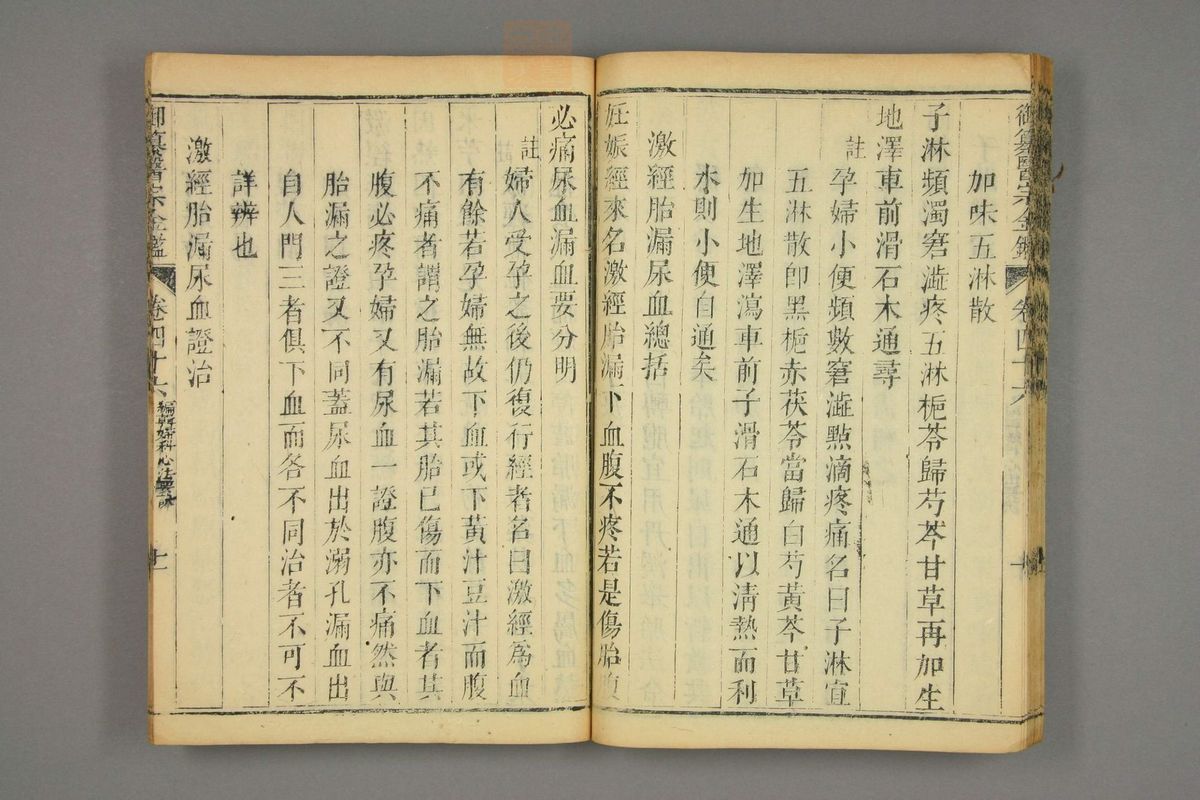 御纂醫宗金鑑 卷四十六
加味五淋散
子淋頻濁窘澁疼五淋梔苓歸芍芩甘草再加生
地澤車前滑石木通尋
註孕婦小便頻數窘澁點滴疼痛名曰子淋宜
五淋散卽黑梔赤茯苓當歸白芍黃芩甘草
加生地澤瀉車前子滑石木通以清熱而利
水則小便自通矣
激經胎漏尿血總括
妊娠經來名激經胎漏下血腹不疼若是傷胎腹
必痛尿血漏血要分明
註婦人受孕之後仍復行經者名曰激經爲血
有餘若孕婦無故下血或下黃汁豆汁而腹
不痛者謂之胎漏若其胎已傷而下血者其
腹必疼孕婦又有尿血一證腹亦不痛然與
胎漏之證又不同蓋尿血出於溺孔漏血出
自人門三者俱下血而各不同治者不可不
詳辨也
激經胎漏尿血證治
御纂醫宗金鑑 卷四十六 編輯婦科心法要訣 十一